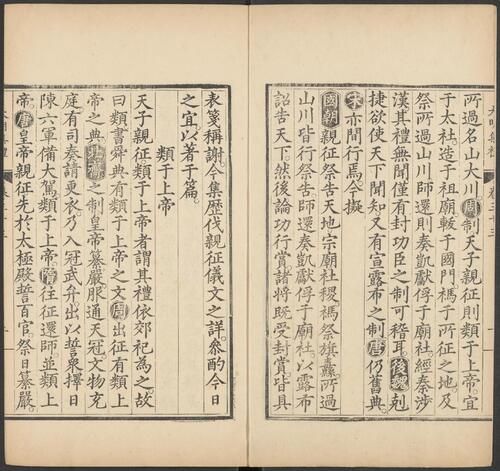 所過名山大川周制天子親征則類于上帝宜
于太社造于祖廟軷于國門禡于所征之地及
祭所過山川師還則奏凱獻俘于廟社經秦涉
漢其禮無聞僅有封功臣之制可稽耳後魏剋
捷欲使天下聞知又有宣露布之制唐仍舊典
宋亦間行焉今擬
國朝親征祭告天地宗廟社稷禡祭旗纛所過
山川皆行祭告師還奏凱獻俘于廟社以露布
詔告天下然後論功行賞諸將既受封賞皆具
表箋稱謝今集歷伐親征儀文之詳叅酌今日
之宜以著于篇
類于上帝
天子親征類于上帝者謂其禮依郊祀為之故
曰類書舜典有類于上帝之文周出征有類上
帝之典北齊之制皇帝纂嚴服通天冠文物充
庭有司奏請更衣乃入冠武弁出以誓衆擇日
陳六軍備大駕類于上帝隋往征還師並類上
帝唐皇帝親征先於太極殿誓百官祭日纂嚴